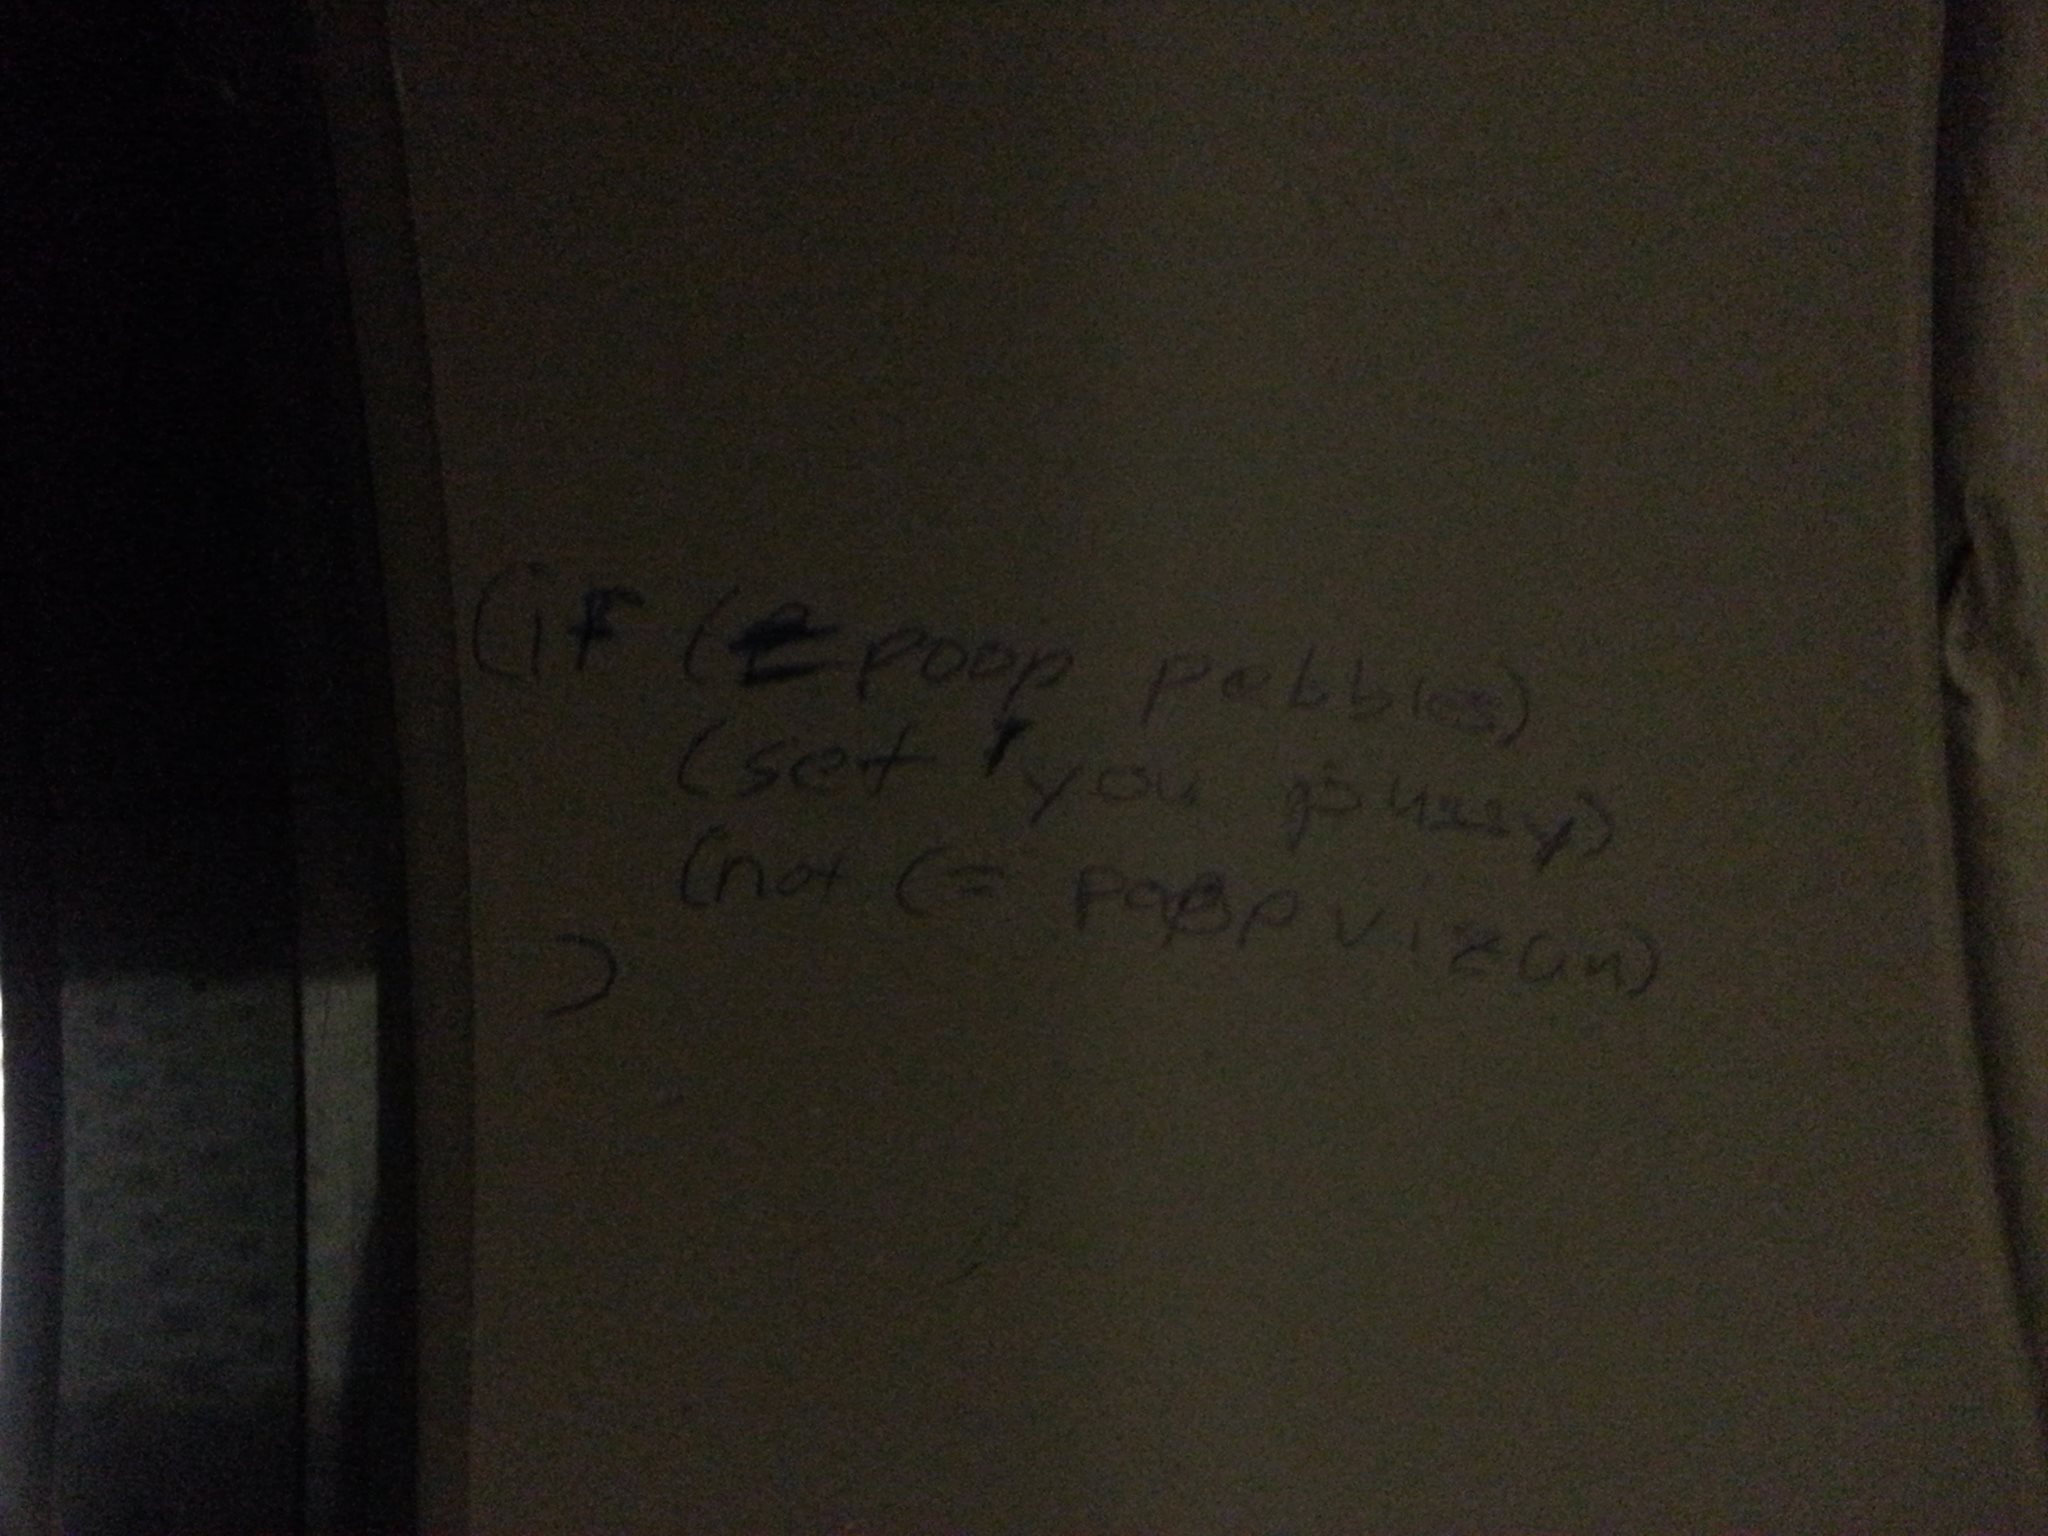 (if (= poop pebbles)
(set 'you pussy)
(not (= poop
)